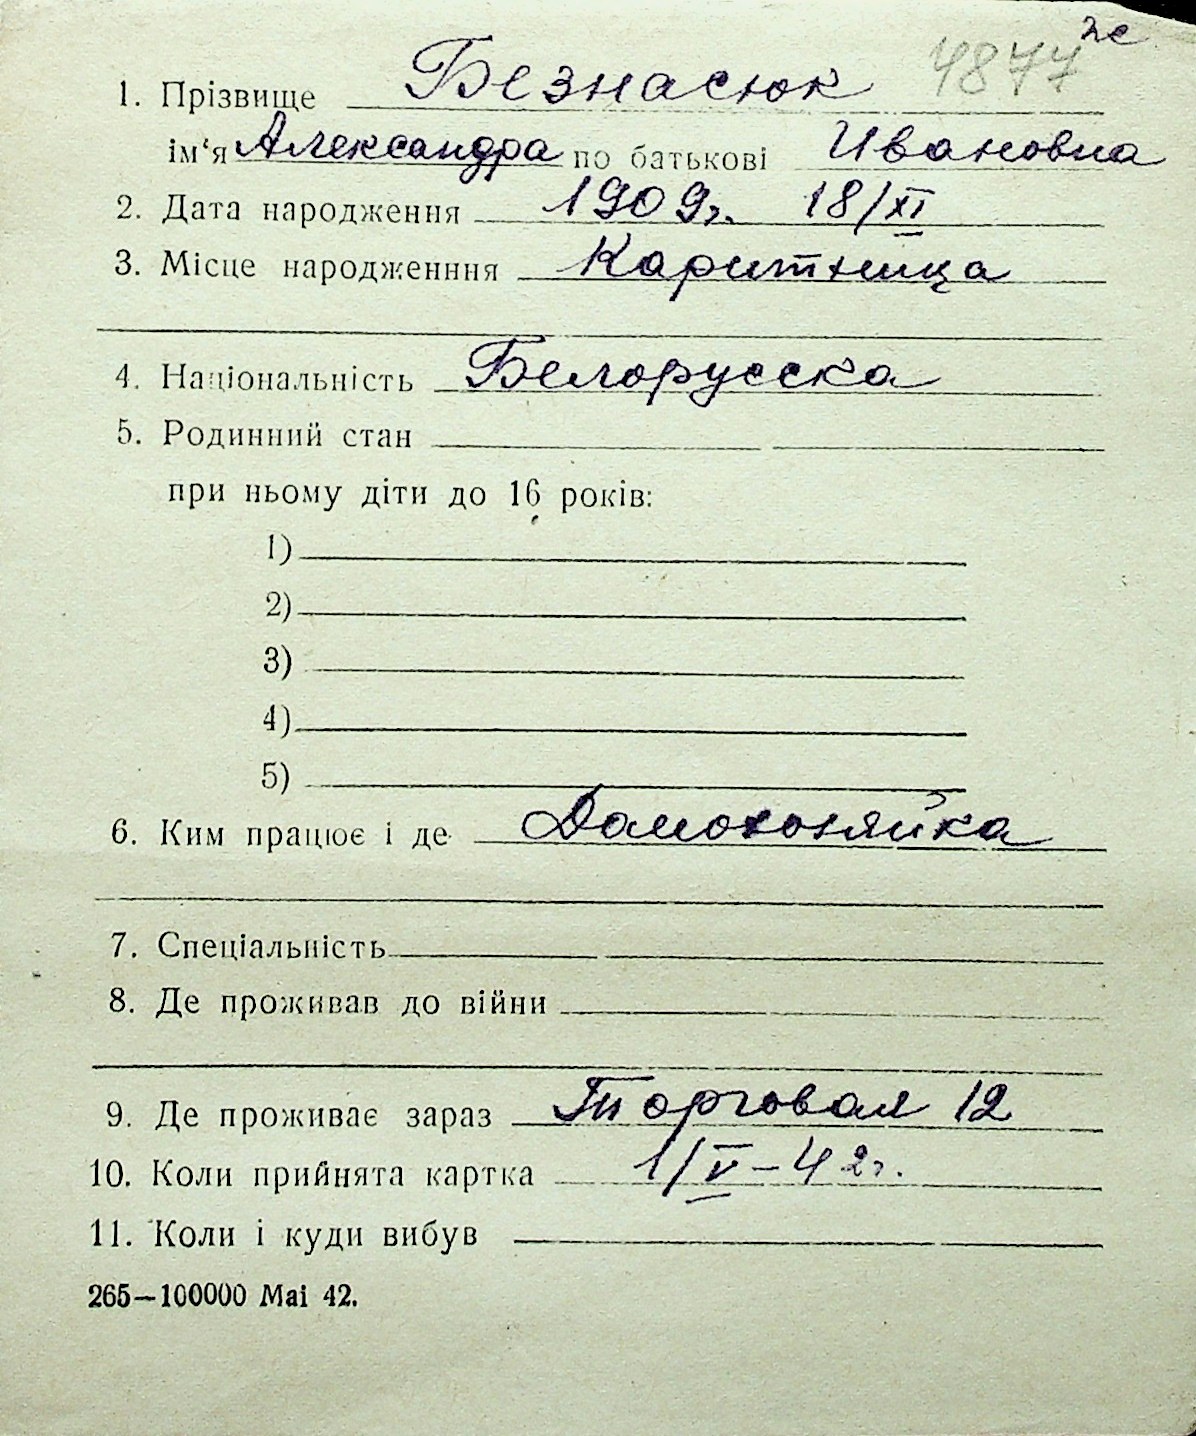 же
4877
1. Прізвище Безнасюк
ім‘я Александра по батькові Ивановна
2. Дата народження 1909г. 18/XI
3. Місце народженння Каритница
4. Національність Белорусска
5. Родинний стан
при ньому діти до 16 років:
1)
2)
3)
4)
5)
6. Ким працює і де Домохозяйка
7. Спеціальність
8. Де проживав до війни
9. Де проживає зараз Торговая 12
10. Коли прийнята картка 1/V–42г.
11. Коли і куди вибув
265—100000 Mai 42.